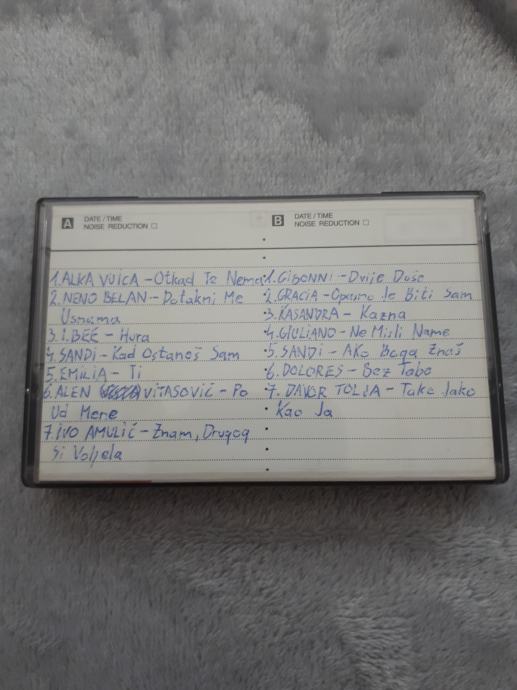 A DATE / TIME
NOISE REDUCTION
1. ALKA VUICA - Otkad Te Nema
2. NENO BELAN - Dotakni Me
Usnama
3. I. BEĆ - Hura
4. SANDI - Kad Ostaneš Sam
5. EMILIA - Ti
6. ALEN VITASOVIĆ - Po
Ud Mere
7. IVO AMULIĆ - Znam, Drugog
Si Voljela
B DATE / TIME
NOISE REDUCTION
1. GIBONNI - Dvije Duše
2. GRACIA - Opasno Je Biti Sam
3. KASANDRA - Kazna
4. GIULIANO - Ne Misli Name
5. SANDI - AKo Boga Znaš
6. DOLORES - Bez Tebe
7. DAVOR TOLJA - Tako Jako
Kao Ja